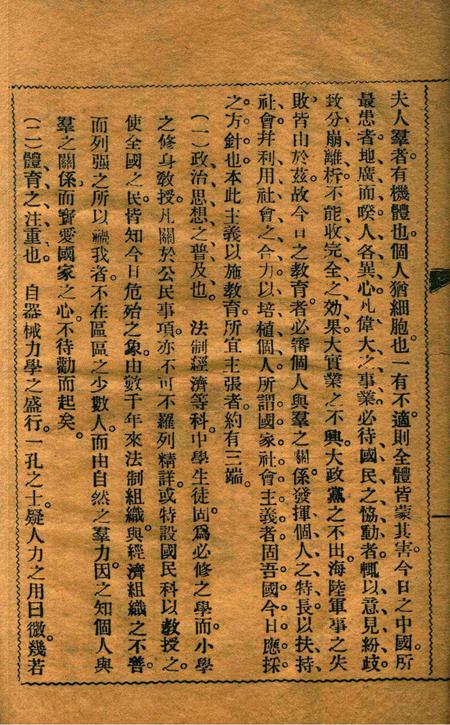 夫人羣者有機體也個人猶細胞也一有不適則全體皆蒙其害今日之中國所
最患者地廣而暌人各異心凡偉大之事業必待國民之恊動者輒以意見紛歧
致分崩離析不能收完全之効果大實業之不興大政黨之不出海陸軍事之失
敗皆由於茲故今日之教育者必審個人與羣之關係發揮個人之特長以扶持
社會幷利用社會之合力以培植個人所謂國家社會主義者固吾國今日應採
之方針也本此主義以施教育所宜主張者約有三端
(一)政治思想之普及也 法制經濟等科中學生徒固爲必修之學而小學
之修身敎授凡關於公民事項亦不可不羅列精詳或特設國民科以敎授之
使全國之民皆知今日危殆之象由數千年來法制組織與經濟組織之不善
而列强之所以禍我者不在區區之少數人而由自然之羣力因之知個人與
羣之關係而寶愛國家之心不待勸而起矣
(二)體育之注重也 自器械力學之盛行一孔之士疑人力之用日微幾若